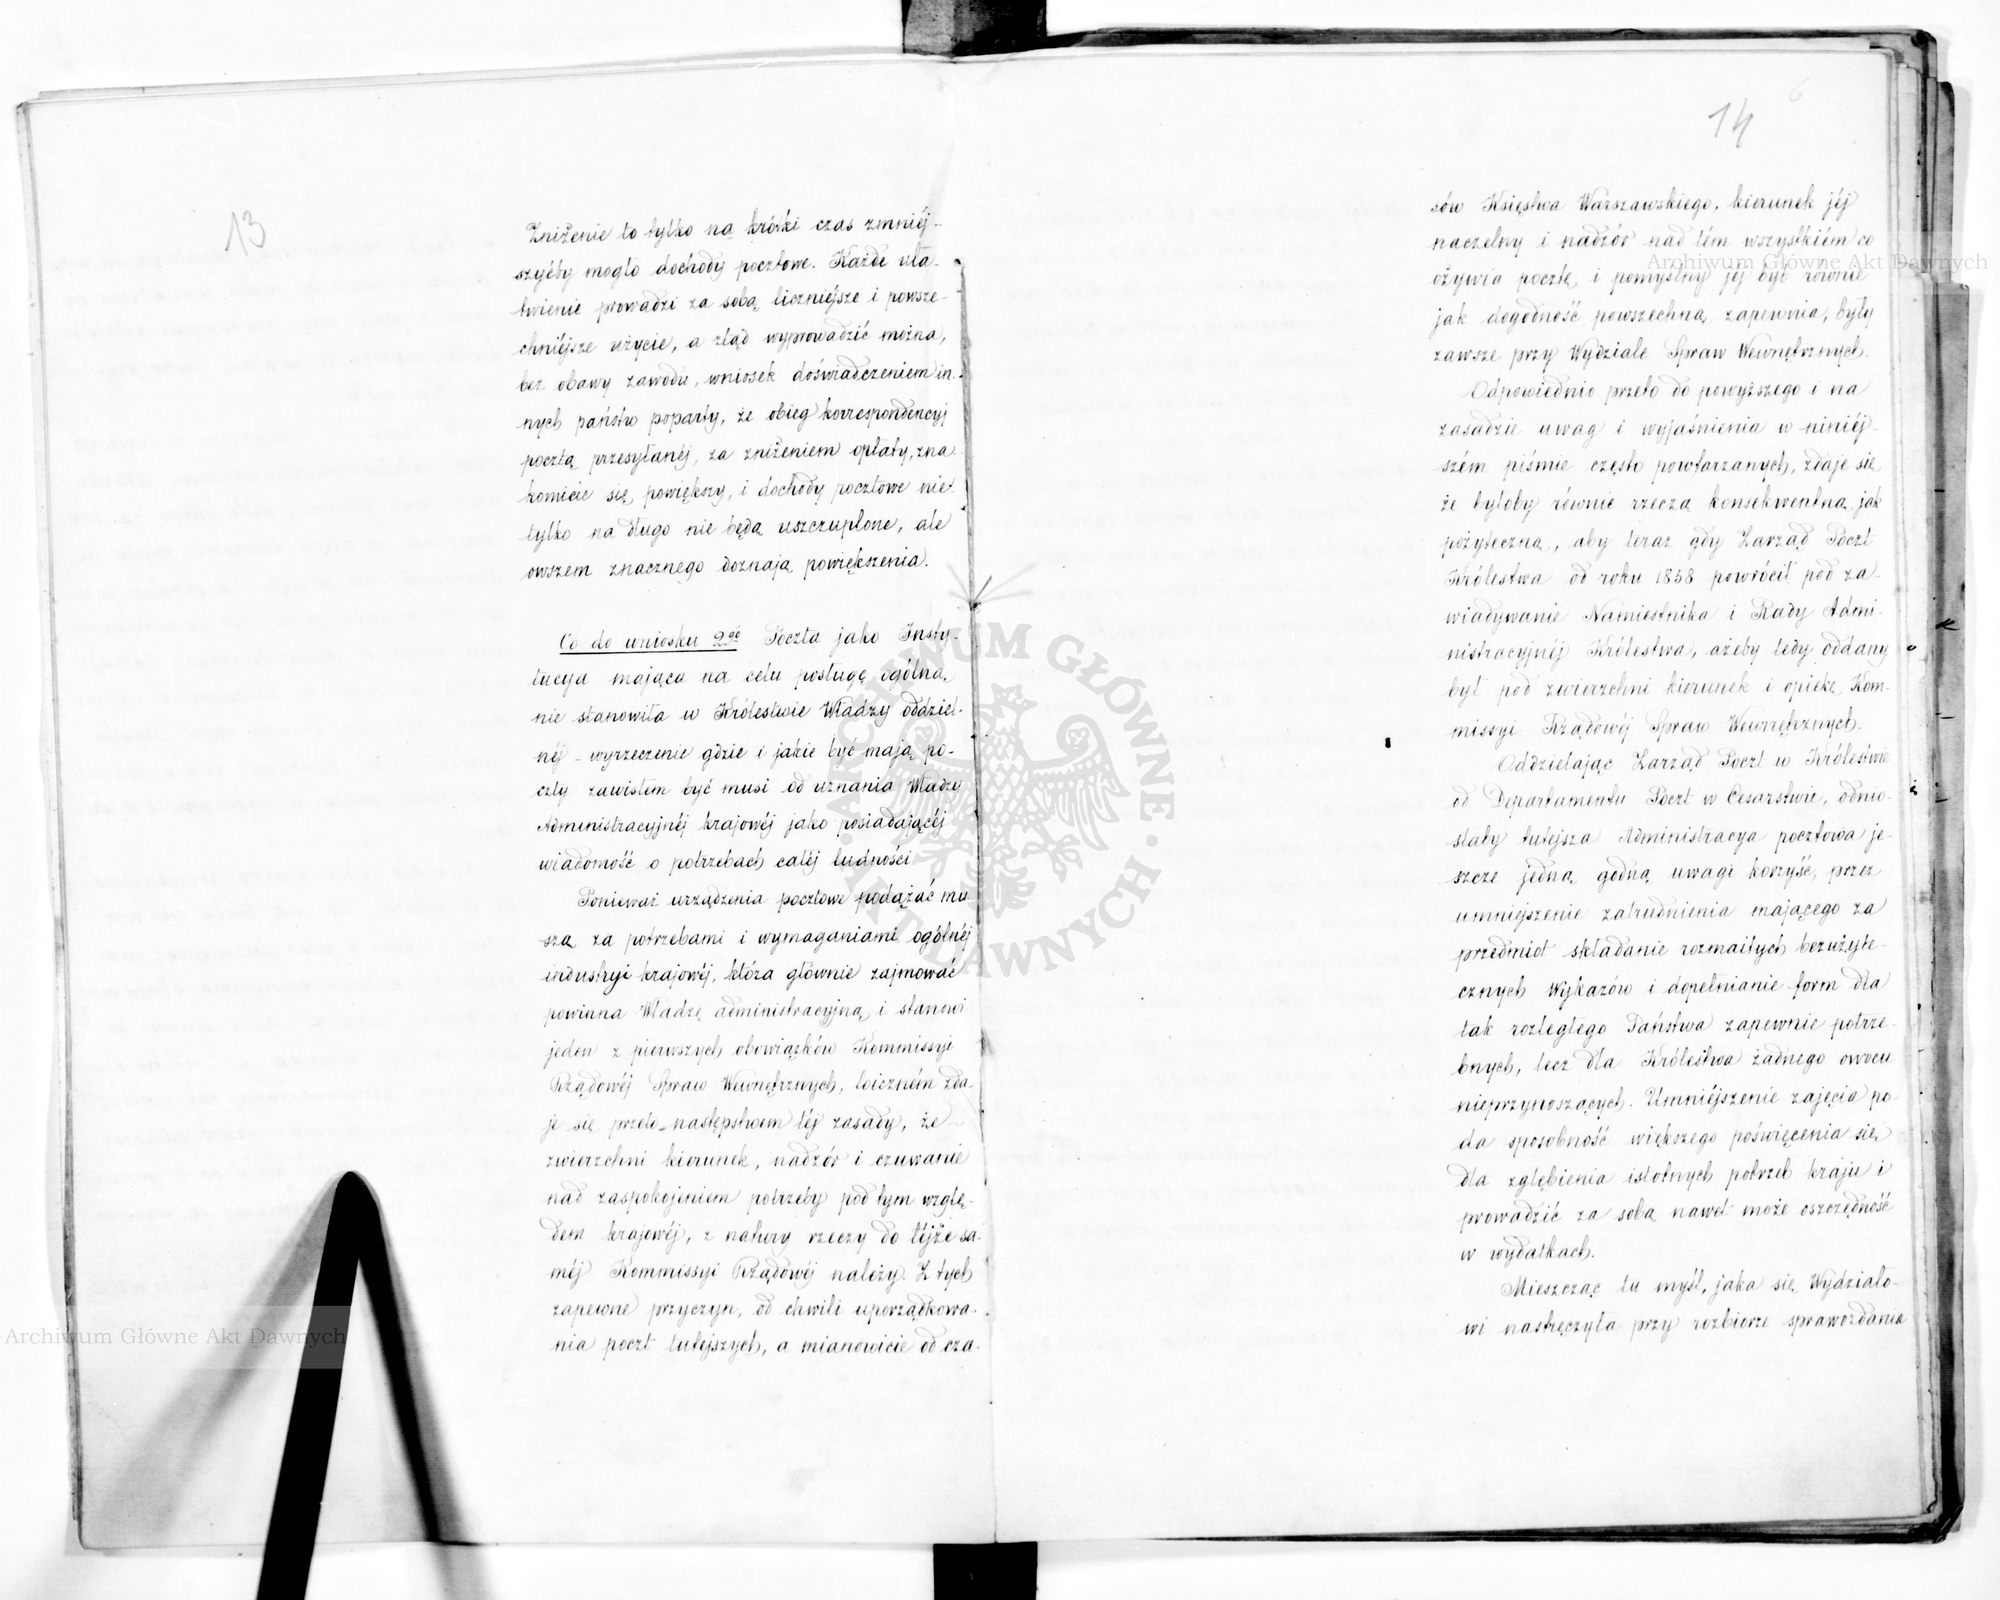 13
Zniżenie to tylko na krótki czas zmniéj-
szyćby mogło dochody pocztowe. Każde uła-
twienie prowadzi za sobą liczniéjsze i powsze-
chniéjsze użycie, a ztąd wyprowadzić można,
bez obawy zawodu, wniosek doświadczeniem in-
nych państw poparty, że obieg korrespondencyj
pocztą przesyłanéj, za zniżeniem opłaty, zna
komicie się powiększy, i dochody pocztowe nie
tylko na długo nie będą uszczuplone, ale
owszem znacznego doznają powiększenia.
Co do wniosku 2go Poczta jako Insty-
tucya mająca na celu posługę ogólną,
nie stanowiła w Królestwie Władzy oddziel-
néj - wyrzeczenie gdzie i jakie być mają po-
czty zawisłem być musi od uznania Władzy
Administracyjnéj krajowéj jako posiadającéj
wiadomość o potrzebach całéj ludności
Ponieważ urządzenia pocztowe podążać mu
szą za potrzebami i wymaganiami ogólnéj
industryi krajowéj, która głównie zajmować
powinna Władzę administracyjną i stanowi
jeden z pierwszych obowiązków Kommissyi
Rządowéj Spraw Wewnętrznych, loiczném zda-
je się przeto następstwem téj zasady, że
zwierzchni kierunek, nadzór i czuwanie
nad zaspokojeniem potrzeby pod tym wzglę-
dem krajowéj, z natury rzeczy do téjże sa-
méj Kommissyi Rządowéj należy. Z tych
zapewne przyczyn, od chwili uporządkowa-
nia poczt tutejszych, a mianowicie od cza-
14
sów Księstwa Warszawskiego, kierunek jéj
naczelny i nadzór nad tém wszystkiém co
ożywia pocztę i pomyślny jéj byt równie
jak dogodność powszechną zapewnia, były
zawsze przy Wydziale Spraw Wewnętrznych.
Odpowiednio przeto do powyższego i na
zasadzie uwag i wyjaśnienia w niniéj-
szém piśmie często powtarzanych, zdaje się
że byłoby równie rzeczą konsekwentną, jak
pożyteczną, aby teraz gdy Zarząd Poczt
Królestwa od roku 1858 powrócił pod za-
wiadywanie Namiestnika i Rady Admi-
nistracyjnéj Królestwa, ażeby tedy oddany
był pod zwierzchni kierunek i opiekę Kom-
missyi Rządowéj Spraw Wewnętrznych.
Oddzielając Zarząd Poczt w Królestwie
od Departamentu Poczt w Cesarstwie, odnio-
słaby tutejsza Administracya pocztowa je-
szcze jedną godną uwagi korzyść, przez
umniejszenie zatrudnienia mającego za
przedmiot składanie rozmaitych bezużyte-
cznych Wykazów i dopełnianie form dla
tak rozległego Państwa zapewnie potrze-
bnych, lecz dla Królestwa żadnego owocu
nieprzynoszących. Umniéjszenie zajęcia po-
da sposobność większego poświęcenia się
dla zgłębienia istotnych potrzeb kraju i
prowadzić za sobą nawet może oszczędność
w wydatkach.
Mieszcząc tu myśl, jaka się Wydziało-
wi nastręczyła przy rozbiorze sprawozdania
Archiwum Główne Akt Dawnych
Archiwum Główne Akt Dawnych
ARCHIWUM GŁÓWNE · AKT DAWNYCH ·